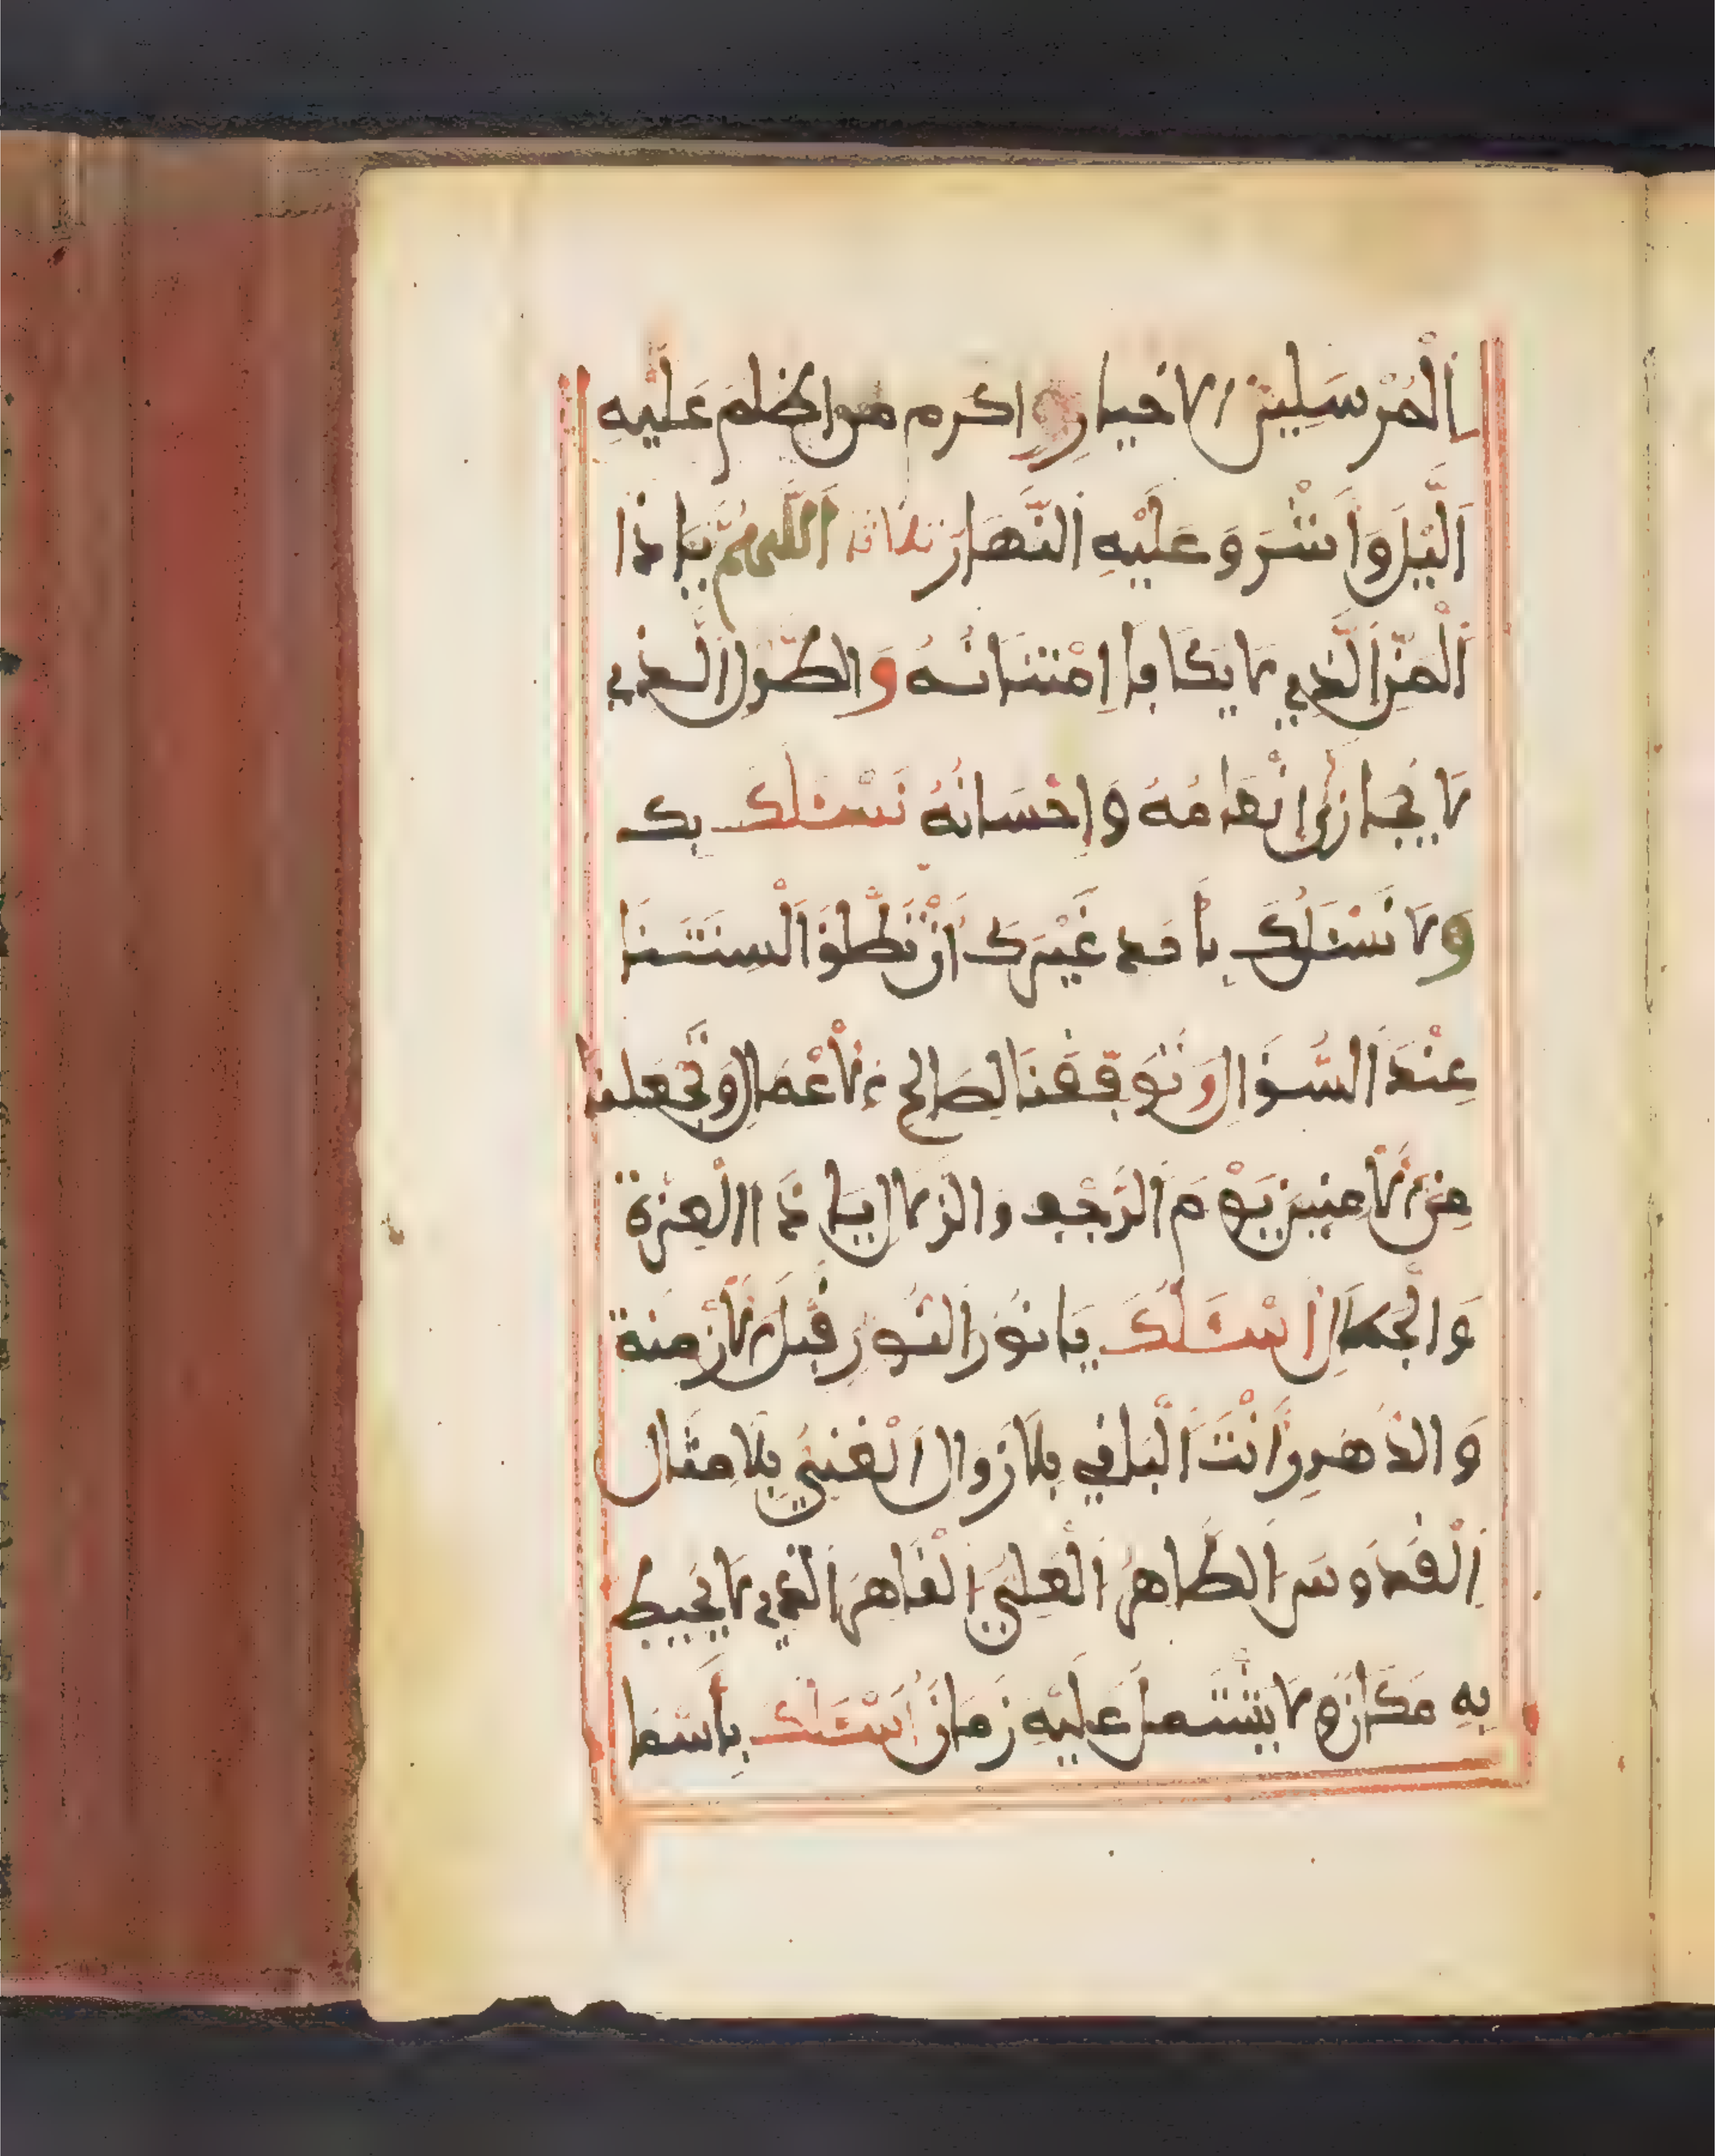 اَلْمُرْسَلِينَ الاخيارِ واكرم من اظلم عَليْهِ
اَلَّيْلُ وَأَشْرَقَ عَلَيْهِ النَّهَارُ ثلاثا اَللَّهُمَّ يَا ذَا
اَلْمَنِّ الَّذِي لا يُكَافَا اِمْتِنَانُهُ وَالطَّوْلِ الَّذِي
لا يُجَازَى اِنْعَامُهُ وَاِحْسَانُهُ نَسْئَلُكَ بِكَ
وَلا نَسْئَلُكَ بِأَحَدٍ غَيْرِكَ أَنْ تُطْلِقَ أَلْسِنَتَنَا
عِنْدَ السُّؤَالِ وَتُوَفِّقَنَا لِصَالِحِ الأَعْمَالِ وَتَجْعَلَنَا
مِنَ الأَمِنِينَ يَوْمَ الرَّجْفِ والزلازل يَا ذَا الْعِزَّةِ
وَالْجَلاَلِ أَسْئَلُكَ يَا نُورَ النُّورِ قَبْلَ الأَزْمِنَةِ
وَالدُّهُورِ أَنْتَ الْبَاقِي بِلاَ زَوَالِ الْغَنِيُّ بِلاَ مِثَالِ
اَلْقُدُّوسُ الطَّاهِرُ الْعَلِيُّ الْقَاهِرُ الَّذِي لا يُحِيطُ
بِهِ مَكَانٌ وَلا يَشْتَمِلُ عَلَيْهِ زَمَانٌ أَسْئَلُكَ بِأَسْمَا